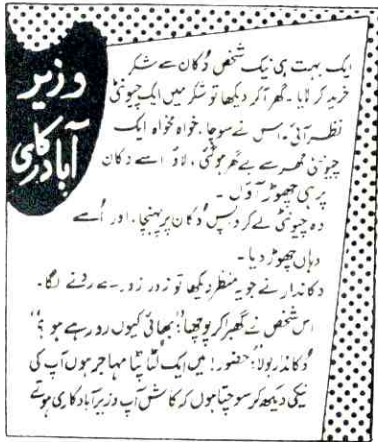 وزیر
آبادکاری
ایک بہت ہی نیک شخص دُکان سے شکر
خرید کر لایا۔ گھر آ کر دیکھا تو شکر میں ایک چیونٹی
نظر آئی۔ اس نے سوچا۔ خواہ مخواہ ایک
چیونٹی مجھ سے بے گھر ہو گئی، لاؤ اسے دکان
پر ہی چھوڑ آؤں۔
وہ چیونٹی لے کر واپس دُکان پر پہنچا، اور اُسے
وہاں چھوڑ دیا۔
دکاندار نے جو یہ منظر دیکھا تو زور زور سے رونے لگا۔
اس شخص نے گھبرا کر پوچھا: "بھائی کیوں رو رہے ہو؟"
دُکاندار بولا: حضور! میں ایک لُٹا پِٹا مہاجر ہوں آپ کی
نیکی دیکھ کر سوچتا ہوں کہ کاش آپ وزیر آبادکاری ہوتے